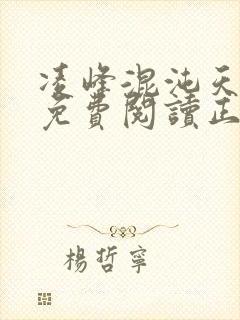 凌峰混沌天
免費閱讀正
楊哲寧